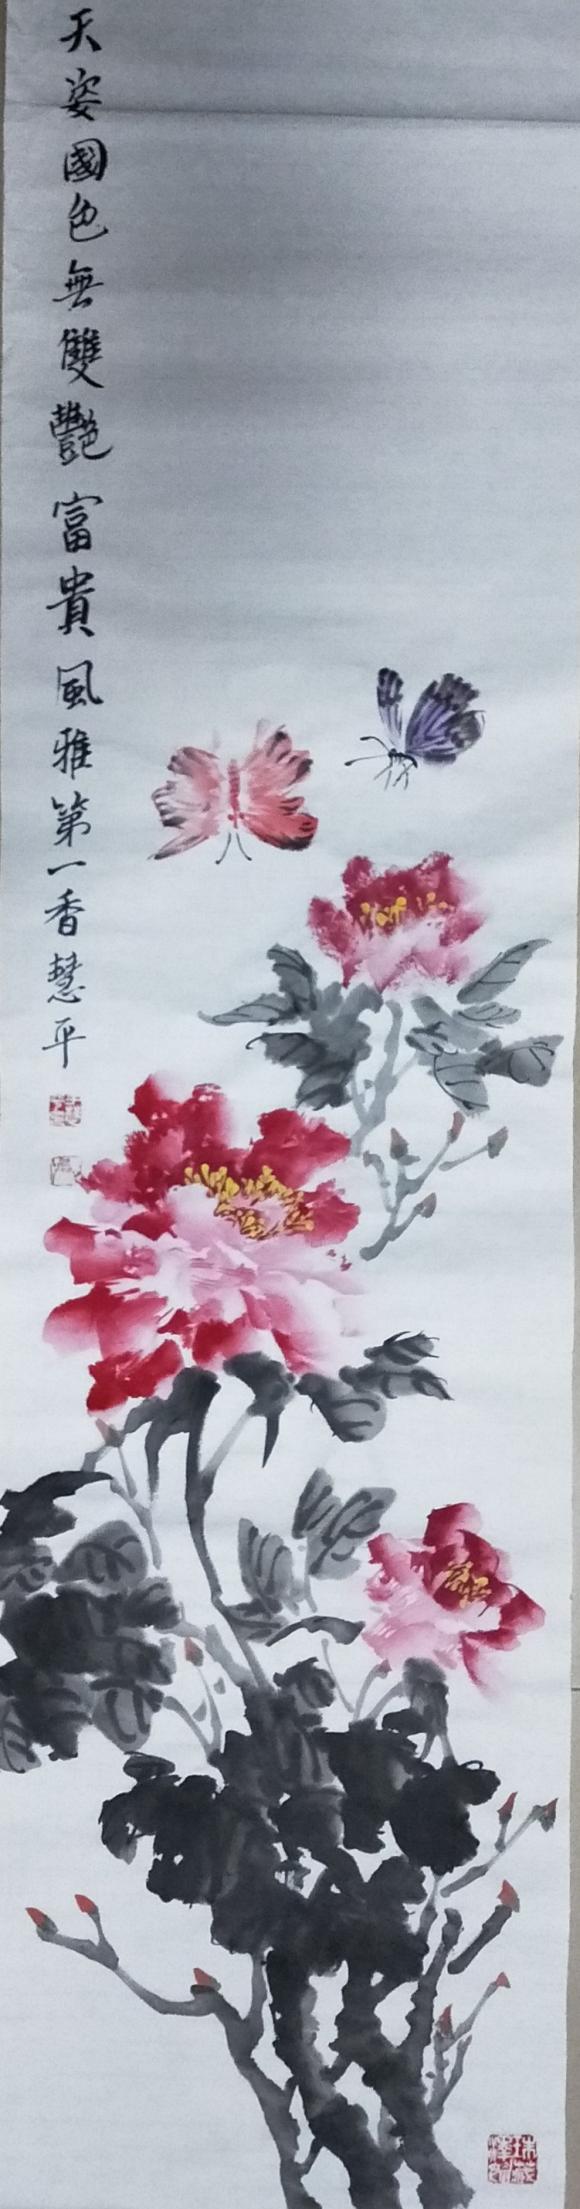 天姿國色無雙艷富貴風雅第一香慧平